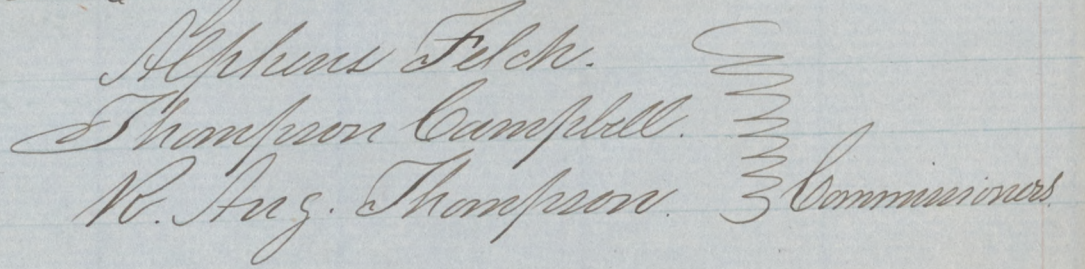 Alpheus Felch.
Thompson Campbell.
R. Aug. Thompson. } Commissioners